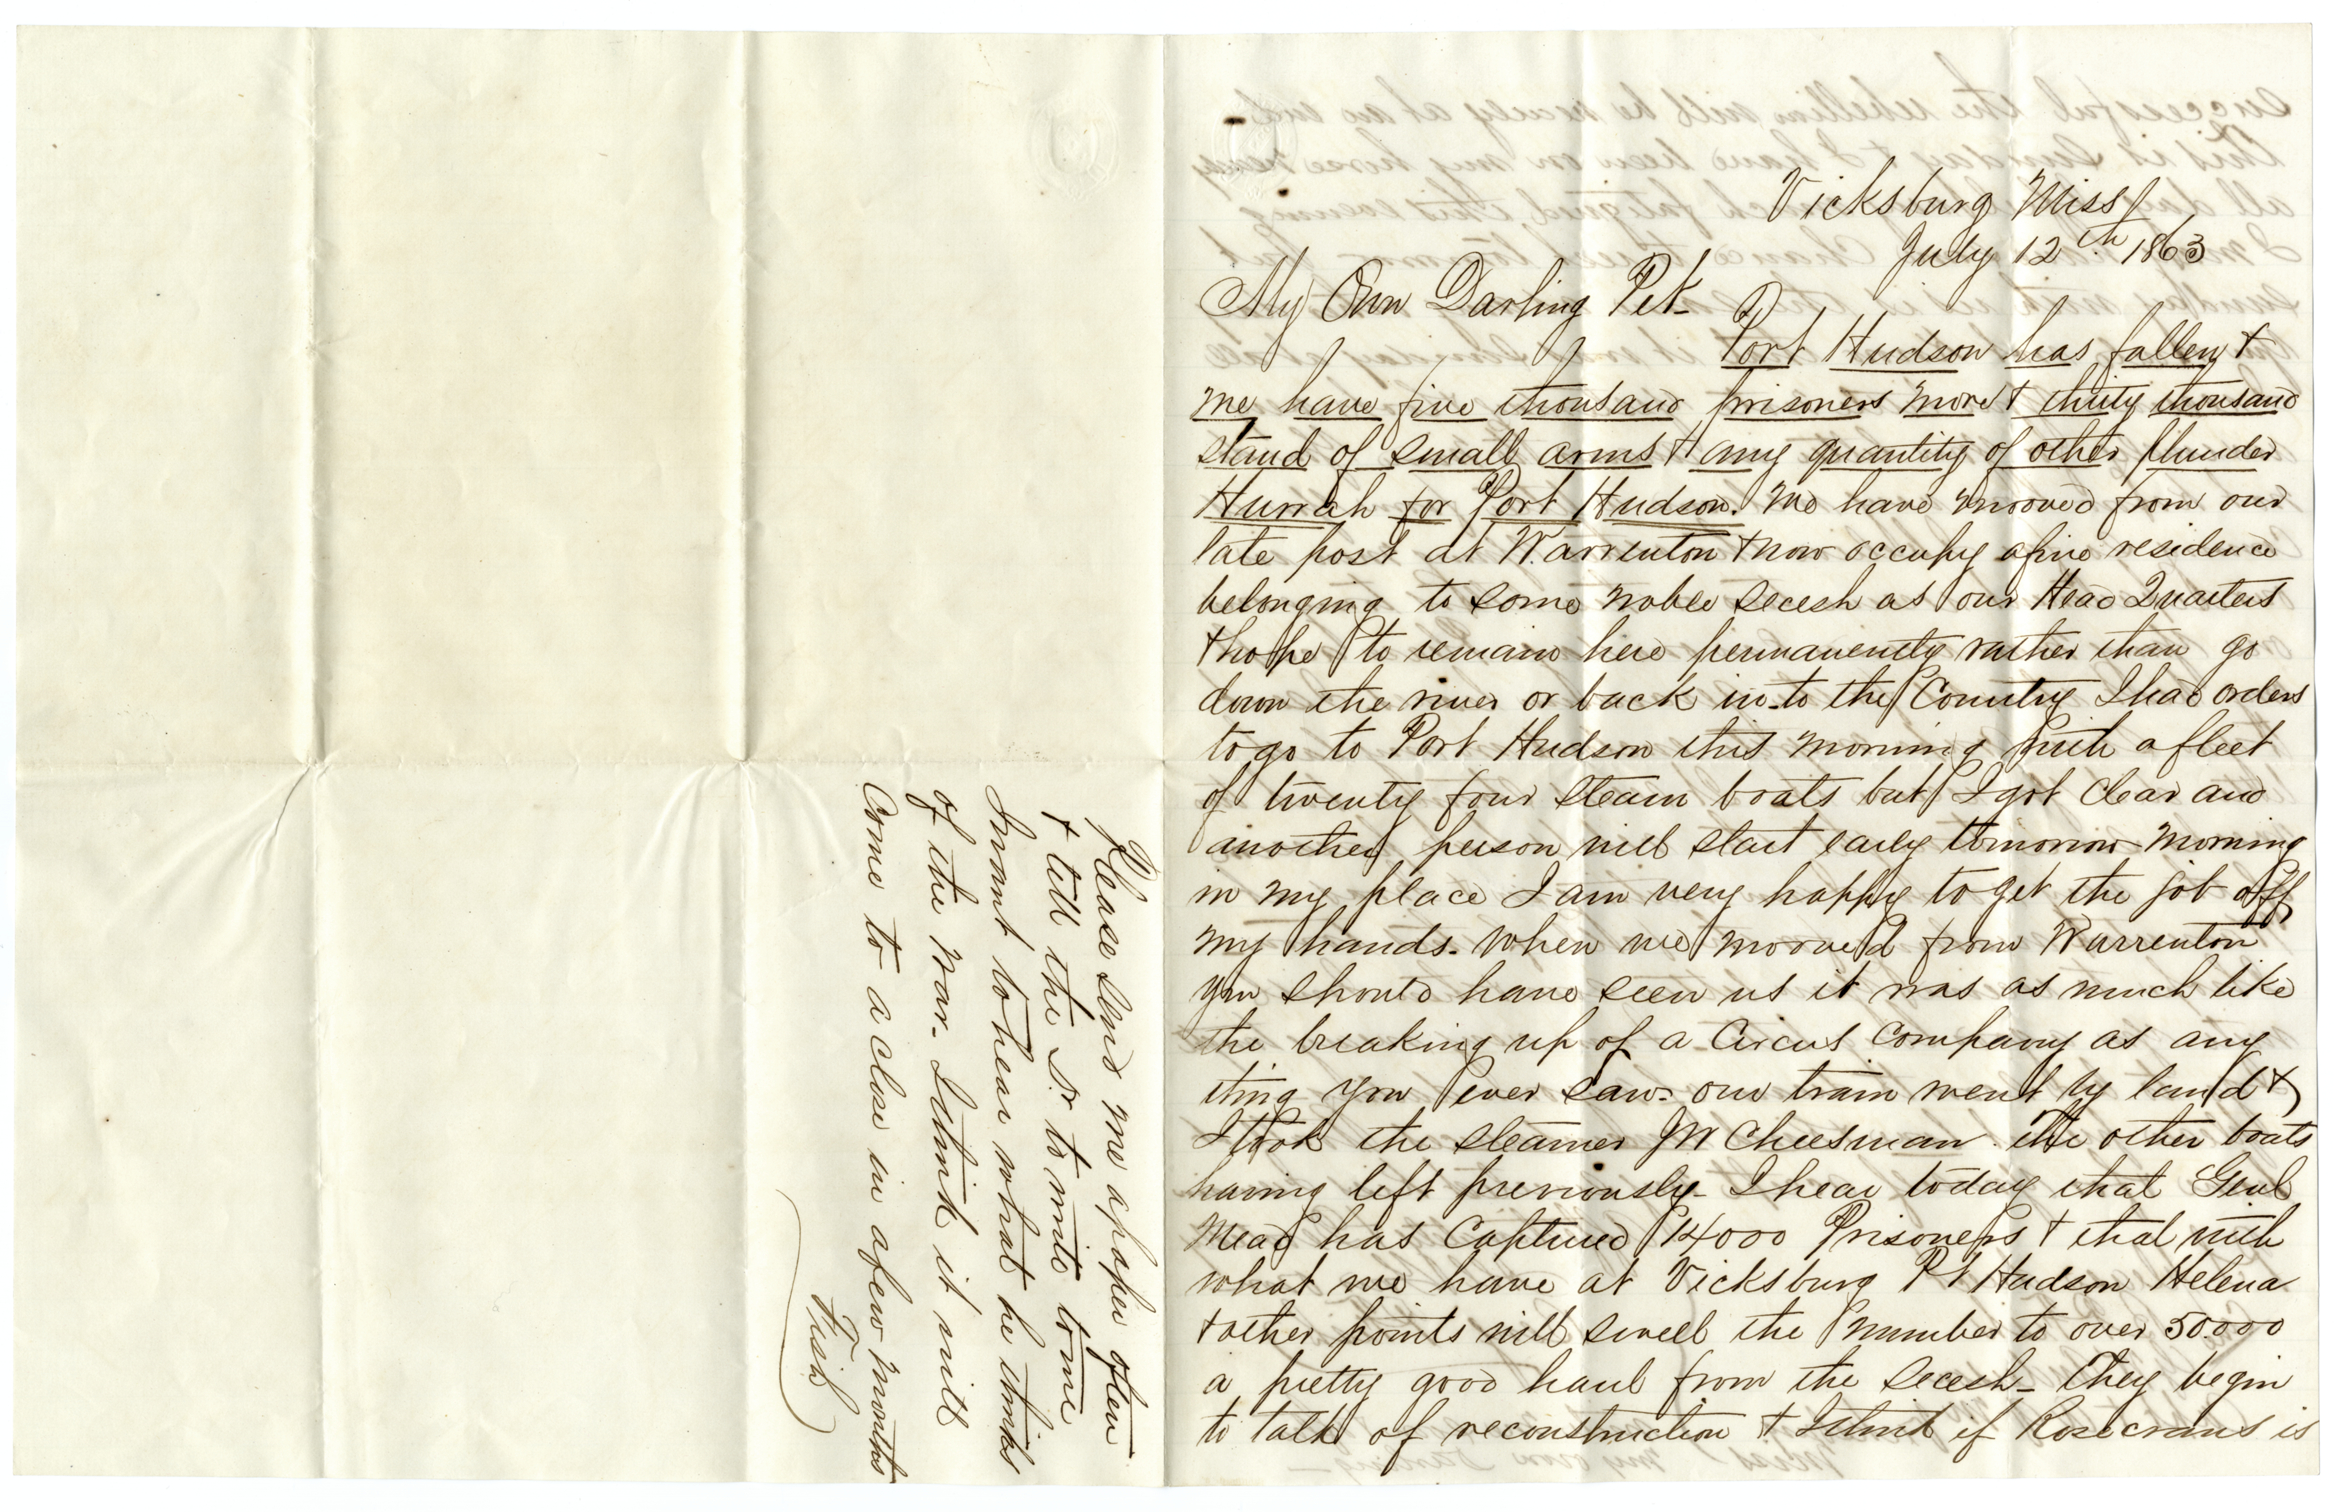 Vicksburg Miss
July 12th 1863
My Own Darling Pet-
Port Hudson has fallen &
we have five thousand prisoners more & thirty thousand
stand of small arms & any quantity of other plunder
Hurrah for Port Hudson. We have mooved from our
late post at Warrenton & now occupy a fine residence
belonging to some noble secesh as our Head Quarters
& hope to remain here permanently rather than go
down the river or back in-to the Country I had orders
to go to Port Hudson this morning with a fleet
of twenty four steam boats but I got clear and
another person will start early tomorrow morning
in my place I am very happy to get the job off
my hands. When we mooved from Warrenton
you should have seen us it was as much like
the breaking up of a Circus Company as any
thing you ever saw- our train went by land &
I took the steamer JW Cheesman. the other boats
having left previously- I hear today that Genl
Mead has Captured 14000 Prisoners & that with
what we have at Vicksburg Pt Hudson Helena
& other points will swell the number to over 50.000
a pretty good haul from the secesh- they begin
to talk of reconstruction & I think if Rosecrans is
Please send me a paper often
& tell the Dr to write to me
I want to hear what he thinks
of the war- I think it will
Come to a close in a few months
Fish